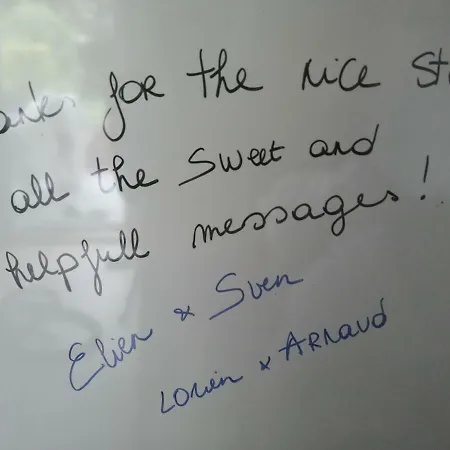 anks for the nice St
all the sweet and
helpfull messages!
Elien & Sven
Lorien & Arnaud